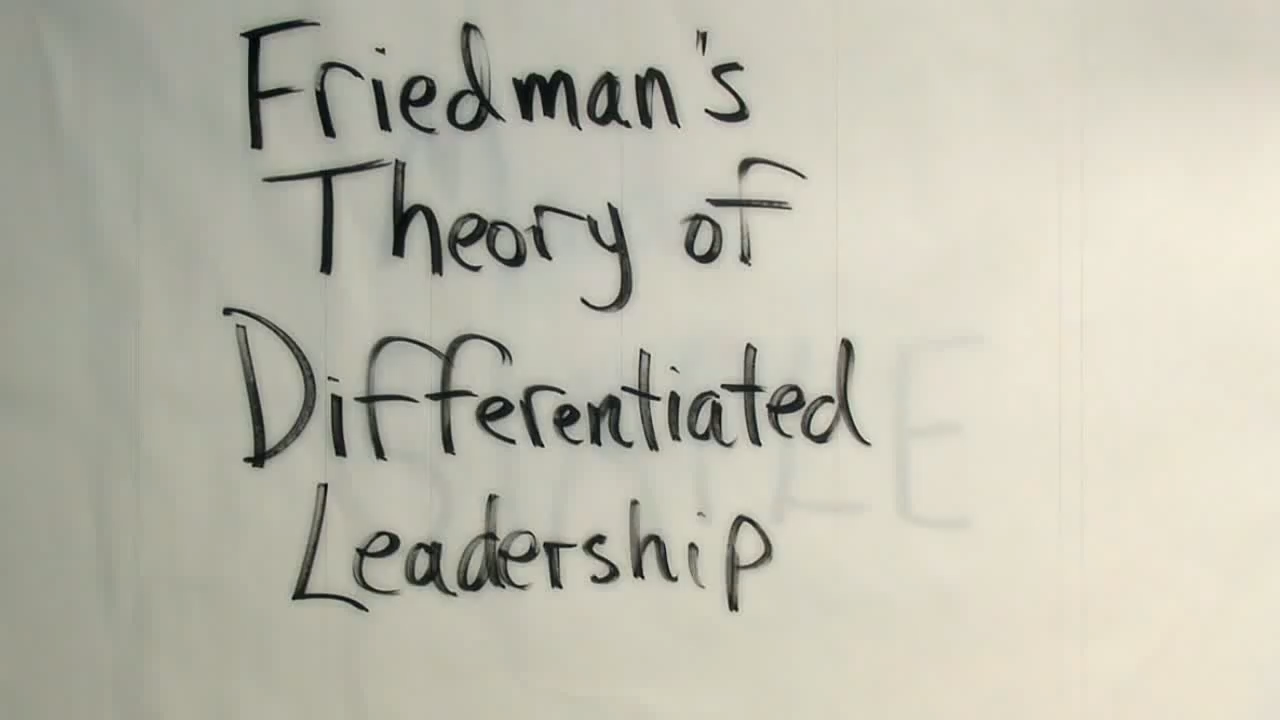 Friedman's
Theory of
Differentiated
Leadership